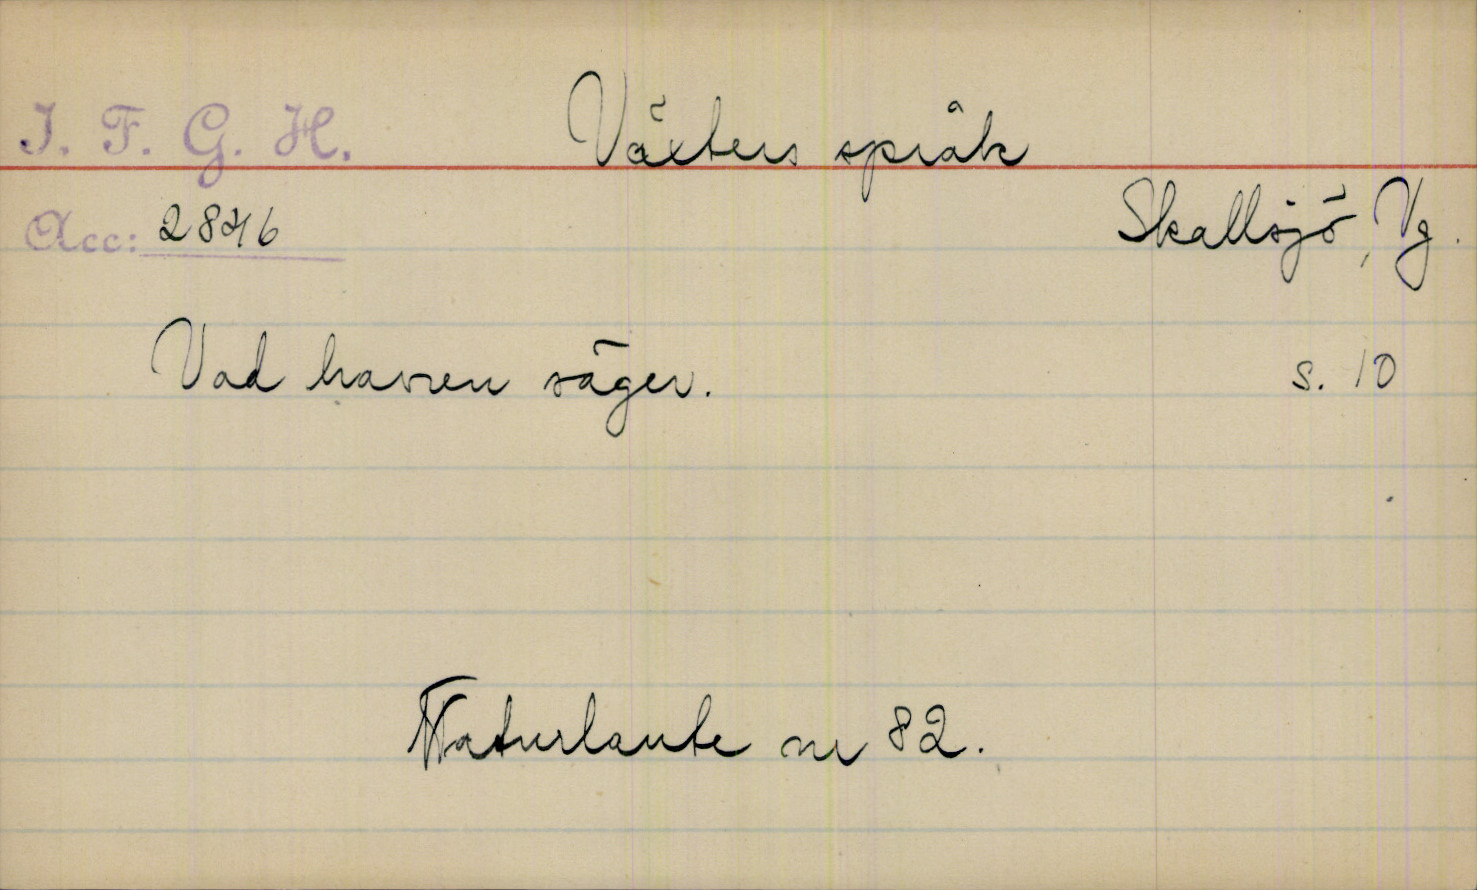 I. F. G. H. Växters språk
Acc: 2846 Skallsjö, Vg.
Vad havren säger. s. 10
Naturlaute nr 82.